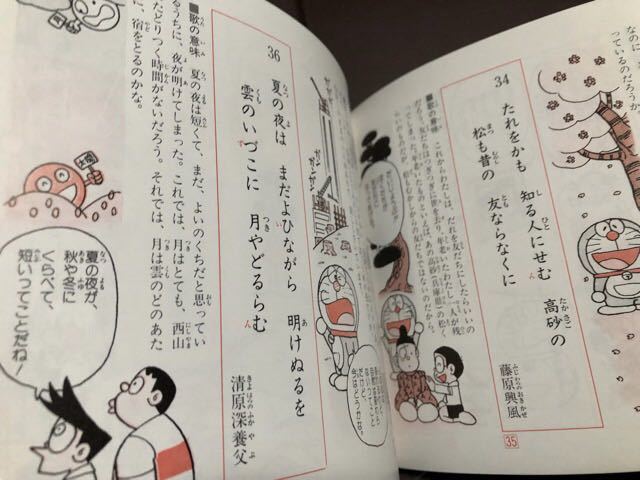 なのに
っているのだろうか
34
たれをかも　知る人にせむ　高砂の
松も昔の　友ならなくに
藤原興風
■歌の意味　これからわたしは、だれを友だちにしたらいいの
35
36
夏の夜は　まだよひながら　明けぬるを
雲のいづこに　月やどるらむ
清原深養父
■歌の意味　夏の夜は短くて、まだ、よいのくちだと思ってい
るうちに、夜が明けてしまった。これでは、月はとても、西山
たどりつく時間がないだろう。それでは、月は雲のどのあた
に、宿をとるのかな。
夏の夜が、
秋や冬に
くらべて、
短いってことだね！